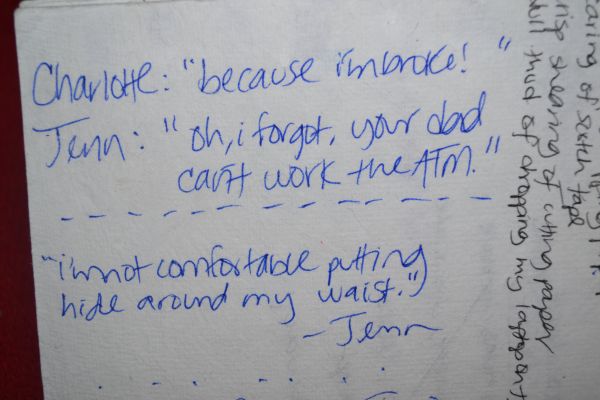 Charlotte: "because i'm broke! "
Jenn: "oh, i forgot, your dad
can't work the ATM."
"i'm not comfortable putting
hide around my waist."
- Jenn
of scotch tape
shearing of cutting paper
thud of dropping my laptop